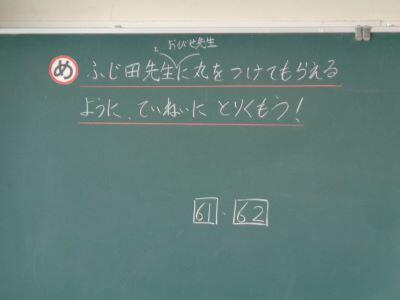 おびせ先生
め ふじ田先生に丸をつけてもらえる
ように、ていねいに とりくもう!
61・62